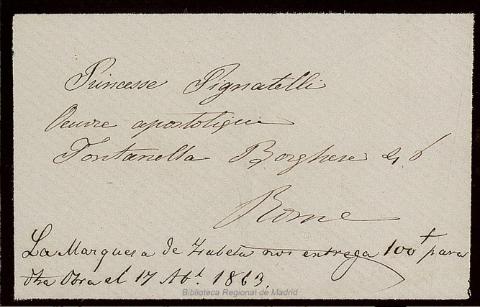 Princesse Pignatelli
Oeuvre apostolique
Fontanella Borghese
Rome
La Marquesa de Isabela nos entrega 100 para
dha Obra el 17 Ab.l 1863.
Biblioteca Regional de Madrid